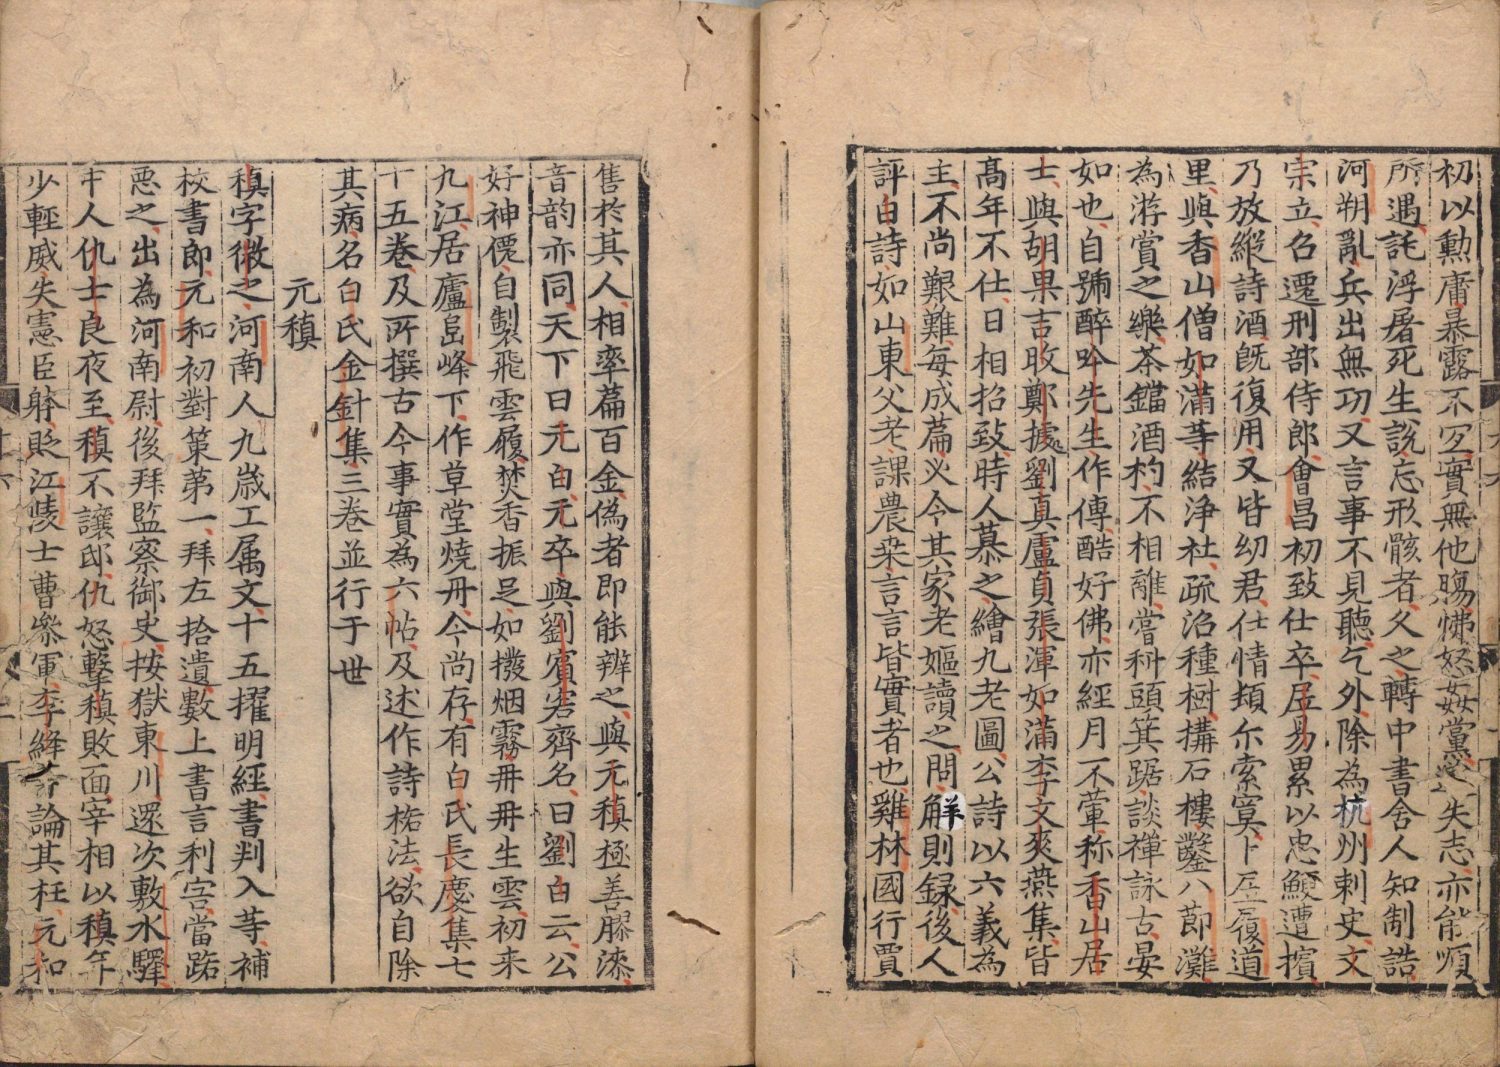 初以勲庸暴露不冝實無他膓怫怒奸黨遂失志亦能順
所遇託浮屠死生説忘形骸者久之轉中書舍人知制誥
河朔亂兵出無功又言事不見聴乞外除為杭州刺史文
宗立召遷刑部侍郎會昌初致仕卒居易累以忠鯁遭擯
乃放縱詩酒既復用又皆幼君仕情頗尓索寞卜居履道
里與香山僧如滿等結浄社疏沿種樹搆石樓鑿八節灘
為游賞之樂茶鐺酒杓不相離嘗科頭箕踞談禪詠古晏
如也自號醉吟先生作傳酷好佛亦經月不葷称香山居
士與胡杲吉旼鄭據劉真盧貞張渾如滿李文爽燕集皆
髙年不仕日相招致時人慕之繪九老圖公詩以六義為
主不尚艱難每成篇必令其家老嫗讀之問觧則録後人
評白詩如山東父老課農桒言言皆實者也雞林國行賈
售於其人相率篇百金偽者即能辨之與元稹極善膠漆
音韵亦同天下曰元白元卒與劉賓客齊名曰劉白云公
好神僊自製飛雲履焚香振足如撥烟霧冉冉生雲初来
九江居廬㠀峰下作草堂燒丹今尚存有白氏長慶集七
十五卷及所撰古今事實為六帖及述作詩格法欲自除
其病名白氏金針集三卷並行于世
元稹
稹字微之河南人九歳工属文十五擢明經書判入等補
校書郎元和初對策第一拜左拾遺數上書言利害當路
惡之出為河南尉後拜監察御史按獄東川還次敷水驛
中人仇士良夜至稹不讓邸仇怒擊稹敗面宰相以稹年
少輕威失憲臣躰貶江陵士曹叅軍李絳論其枉元和